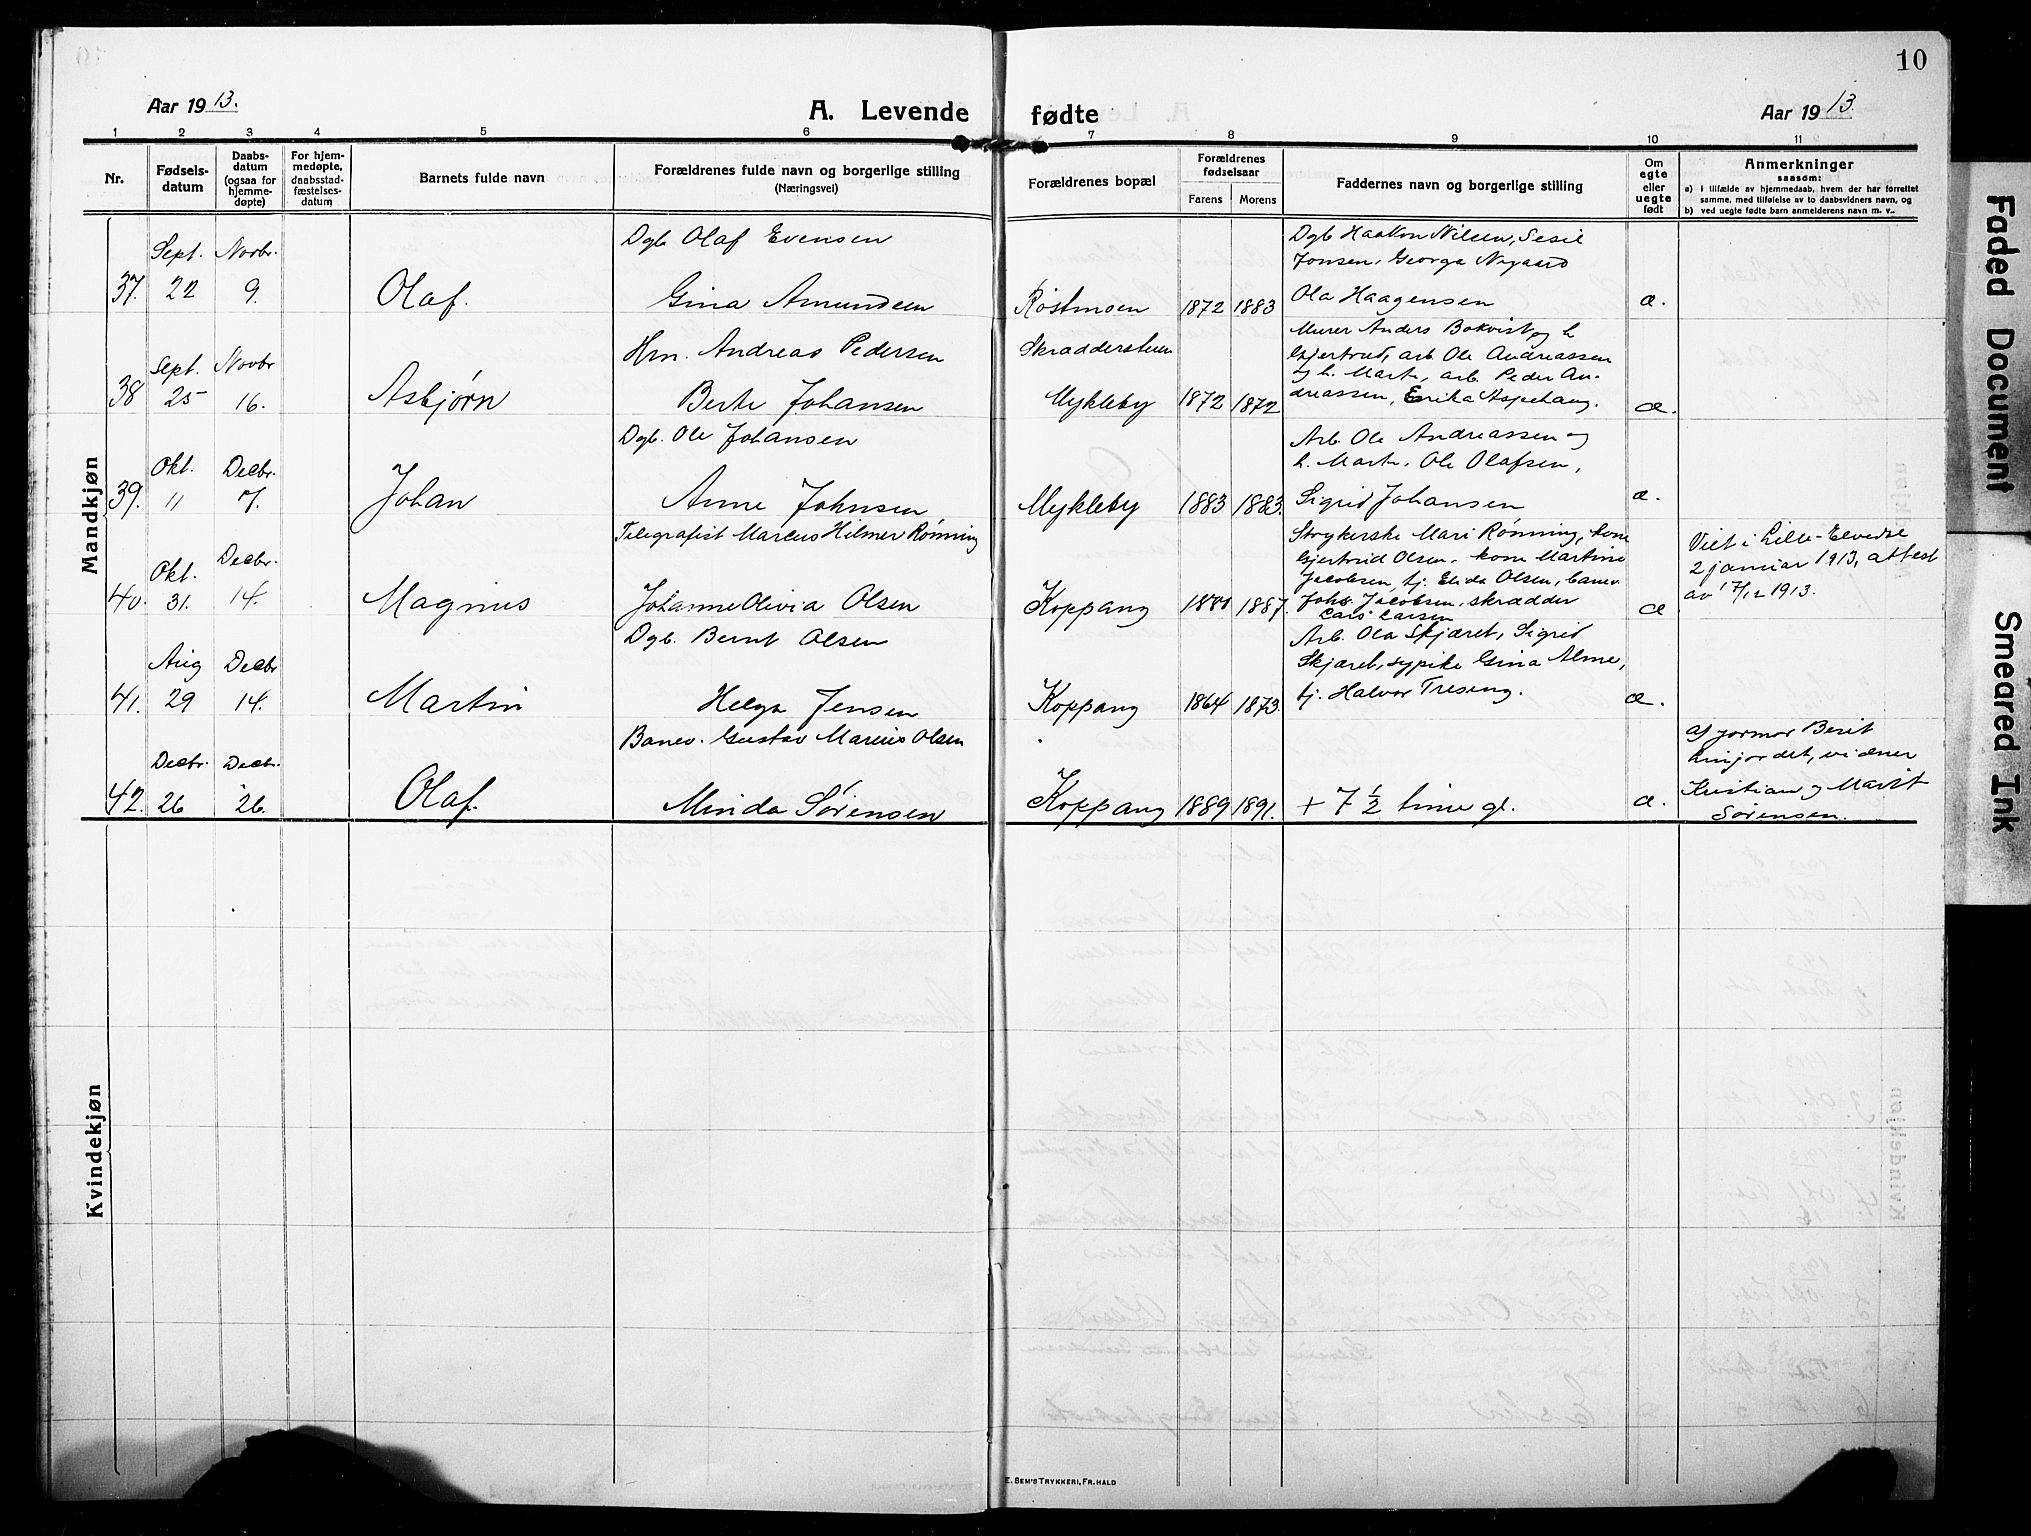 10
Aar 1913.
A. Levende fødte
Aar 1913.
1 2 3 4 5 6 7 8 9 10 11
Nr.
Fødsels-
datum
Daabs-
datum
(ogsaa for
hjemme-
døpte)
For hjem-
medøpte,
daabsstad-
fæstelses-
datum
Barnets fulde navn
Forældrenes fulde navn og borgerlige stilling
(Næringsvei)
Forældrenes bopæl
Forældrenes
fødselsaar
Farens Morens
Faddernes navn og borgerlige stilling
Om
egte
eller
uegte
født
Anmerkninger
saasom:
a) i tilfælde av hjemmedaab, hvem der har forrettet
samme, med tilføielse av to daabsvidners navn, og
b) ved uegte fødte barn anmelderens navn m. v..
Mandkjøn
Sept. Novbr.
37. 22 9. Olaf.
Dgb. Olaf Evensen
Gina Amundsen
Røstmoen 1872 1883
Dgb Haakon Nilsen, Sesil
Jonsen, Georga Nygaard
Ola Haagensen
æ.
Sept. Novbr
38 25 16. Asbjørn
Hrn. Andreas Pedersen
Berte Johansen
Skraddersteen
Mykleby 1872 1872
Murer Anders Bokvist og h.
Gjertrud, arb. Ole Andreassen
og h. Marte, arb. Peder An-
dreassen, Erika Aspehaug.
æ.
Okt. Decbr.
39. 11 7. Johan
Dgb. Ole Johansen
Anne Johnsen
Mykleby 1883 1883.
Arb. Ole Andreassen og
h. Marte, Ole Olafsen,
Sigrid Johansen
æ.
Okt. Decbr.
40. 31. 14. Magnus
Telegrafist Marcus Hilmer Rønning
Johanne Olivia Olsen
Koppang 1887.
Strykerske Mari Rønning, kone
Gjertrud Olsen, kone Martine
Jacobsen, tj. Elida Olsen, banev.
Johs. Jacobsen, skrædder
Lars Larsen
æ
Viet i Lille-Elvedal
2 januar 1913, attest
av 17/12 1913.
Aug Decbr
41. 29 14. Martin
Dgb. Bernt Olsen
Helga Jensen
Koppang 1864 1873.
Arb. Ola Skjæret, Sigrid
Skjæret, sypike Gina Alme,
tj. Halvor Treseng.
æ.
Decbr. Decbr.
42. 26 26. Olaf.
Banev. Gustav Marius Olsen
Minda Sørensen
Koppang 1889 1891.
+ 7 1/2 time gl.
æ.
af jormor Berit
Linjordet, vidner
Kristian og Marit
Sørensen.
Kvindekjøn
E. SEM'S TRYKKERI, FR. HALD
Faded Document
Smeared Ink